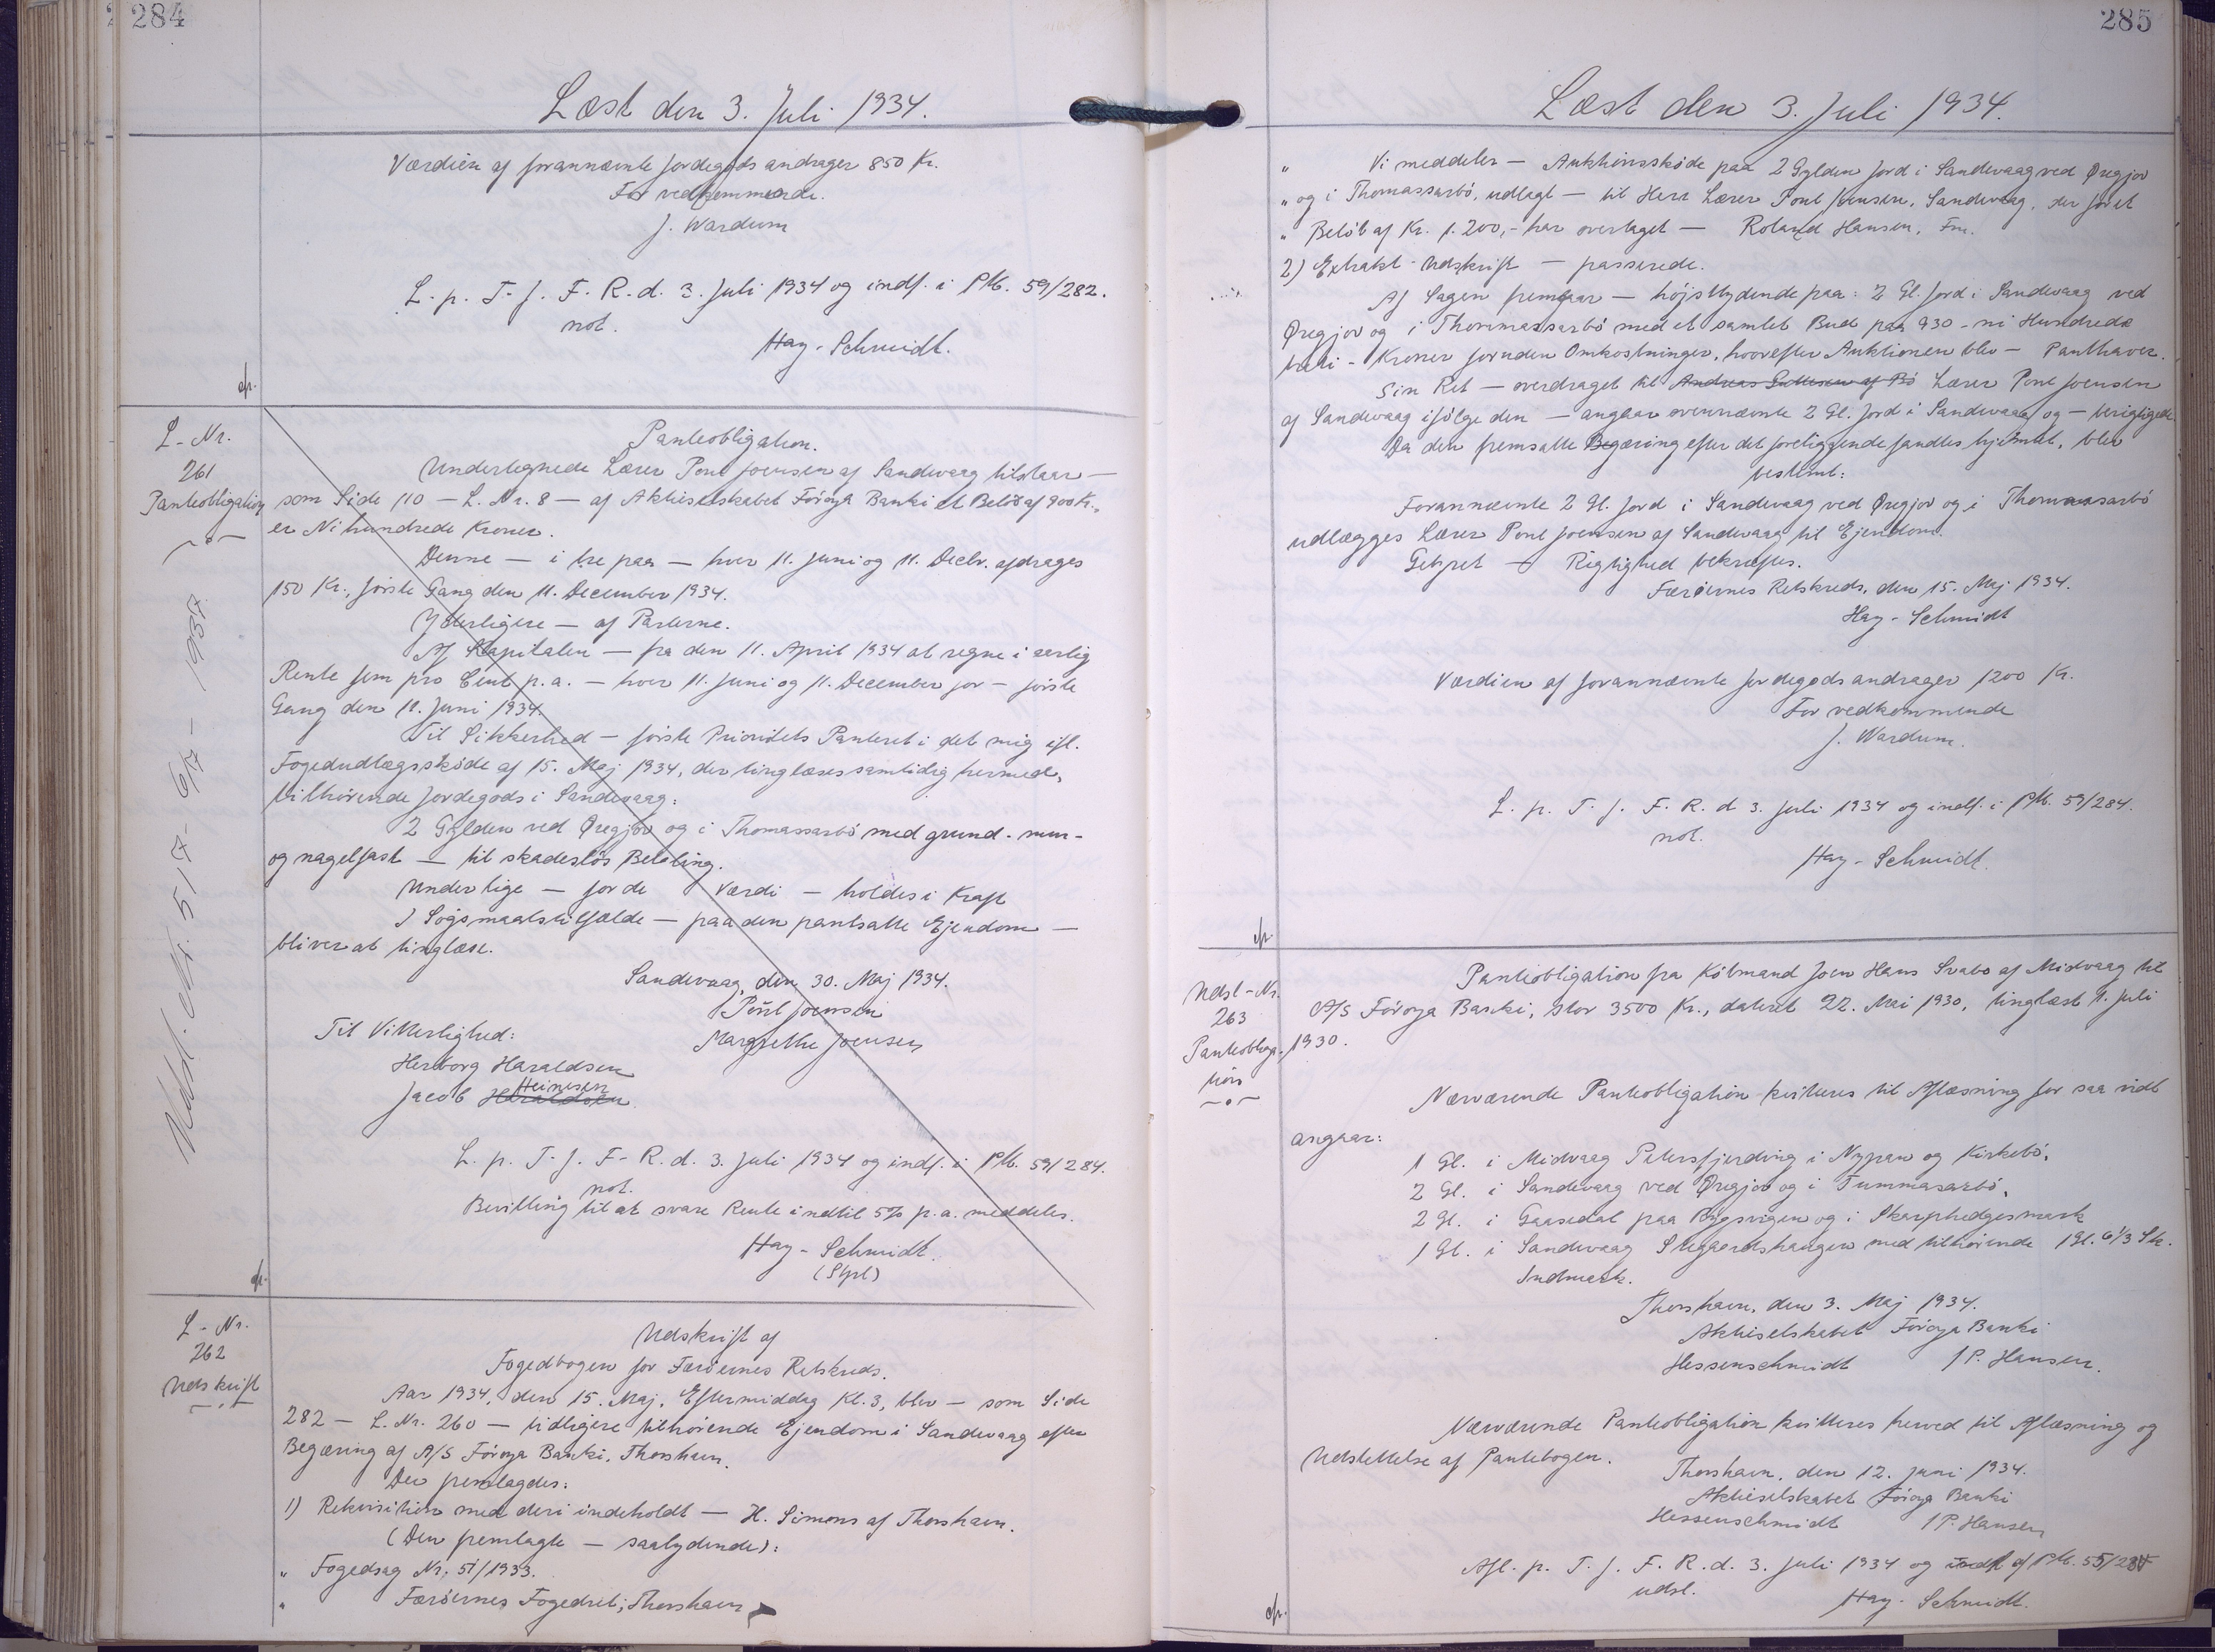 284
Læst den 3. Juli 1934.
Værdien af forannævnte Jordegods andrager 850 Kr.
For vedkommende.
J. Wardum
L. p. T. f. F. R. d. 3. Juli 1934 og indf. i PM. 59/282.
not.
Hay-Schmidt.
cfr.
L-Nr.
261
Panteobligation
Udsl. eft. 517- 6/7 - 1937
Panteobligation.
Undertegnede Lærer Poul Joensen af Sandevaag tilstaar —
som Side 110 — L. Nr. 8 — af Aktieselskabet Føroya Banki et Beløb af 900 Kr.,
er Ni hundrede Kroner.
Denne — i tre paa — hver 11. Juni og 11. Decbr. afdrages
150 Kr., første Gang den 11. December 1934.
Yderligere — af Parterne.
Af Kapitalen — fra den 11. April 1934 at regne i aarlig
Rente fem pro Cent p.a. — hver 11. Juni og 11. December for — første
Gang den 11. Juni 1934.
Til Sikkerhed — første Prioritets Panteret i det mig ifl.
Fogedudlægsskøde af 15. Maj 1934, der tinglæses samtidig hermed,
tilhørende Jordegods i Sandevaag:
2 Gylden ved Øregjov og i Thomassarbø med grund- mur-
og nagelfast — til skadesløs Betaling.
Underlige — for de Værdi — holdes i Kraft
I Søgsmaalstilfælde — paa den pantsatte Ejendom —
bliver at tinglæse.
Sandevaag, den 30. Maj 1934.
Poul Joensen
Til Vitterlighed: Margrethe Joensen
Herborg Haraldsen
Heinesen
Jacob Haraldsen
L. p. T. f. F. R. d. 3. Juli 1934 og indf. i PM. 59/284.
not.
Bevilling til at svare Rente indtil 5% p.a. meddeles.
Hay-Schmidt.
(Stpl)
cfr.
L-Nr.
262
Udskrift
Udskrift af
Fogedbogen for Færøernes Retskreds.
Aar 1934, den 15. Maj, Eftermiddag Kl. 3, blev — som Side
282 — L. Nr. 260 — tidligere tilhørende Ejendom i Sandevaag efter
Begæring af A/S Føroya Banki, Thorshavn.
Der fremlagdes:
1) Rekvisition med deri indeholdt — H. Simons af Thorshavn.
(Den fremlagte — saalydende):
" Fogedsag Nr. 51/1933.
" Færøernes Fogedret, Thorshavn
285
Læst den 3. Juli 1934.
" Vi meddeler — Auktionsskøde paa 2 Gylden Jord i Sandevaag ved Øregjov
" og i Thomassarbø, udlagt — til Herr Lærer Poul Joensen, Sandevaag, der for et
" Beløb af Kr. 1.200,- har overtaget — Roland Hansen, Fm.
2) Extrakt-Udskrift — passerede.
Af Sagen fremgaar — højstbydende paa: 2 Gl. Jord i Sandevaag ved
Øregjov og i Thommassarbø med et samlet Bud paa 930 - ni Hundrede
treti - Kroner foruden Omkostninger, hvorefter Auktionen blev — Panthaver.
Sin Ret — overdraget til Andreas af Bø Lærer Poul Joensen
af Sandevaag ifølge den — angaar ovennævnte 2 Gl. Jord i Sandevaag og — berigtiget.
Da den fremsatte Begæring efter det foreliggende fandtes hjemlet, blev
bestemt:
Forannævnte 2 Gl. Jord i Sandevaag ved Øregjov og i Thommassarbø
udlægges Lærer Poul Joensen af Sandevaag til Ejendom.
Gebyret — Rigtighed bekræftes.
Færøernes Retskreds, den 15. Maj 1934.
Hay-Schmidt
Værdien af forannævnte Jordegods andrager 1200 Kr.
For vedkommende
J. Wardum.
L. p. T. f. F. R. d 3. Juli 1934 og indf. i PM. 59/284.
not.
Hay-Schmidt.
cfr.
Udsl-Nr.
263
Panteobliga-
tion
Panteobligation fra Købmand Joen Hans Svabo af Midvaag til
A/S Føroya Banki, stor 3500 Kr., dateret 22. Mai 1930, tinglæst 1. Juli
1930.
Nærværende Panteobligation kvitteres til Aflæsning for saa vidt
angaar:
1 Gl. i Midvaag Petersfjerding i Nypan og Kirkebø.
2 Gl. i Sandevaag ved Øregjov og i Tummasarbø.
2 Gl. i Gaasedal paa Rygsvigen og i Skarphedgesmark
1 Gl. i Sandevaag Sliggerdshaugen med tilhørende 1 Gl. 6 1/3 Sk.
Indmark.
Thorshavn, den 3. Maj 1934.
Aktieselskabet Føroya Banki
Hessenschmidt /P. Hansen.
Nærværende Panteobligation kvitteres herved til Aflæsning og
Udslettelse af Pantebogen.
Thorshavn, den 12. Juni 1934.
Aktieselskabet Føroya Banki
Hessenschmidt /P. Hansen
Afl. p. T. f. F. R. d. 3. Juli 1934 og indf. af PM. 55/284
udsl.
Hay-Schmidt.
cfr.